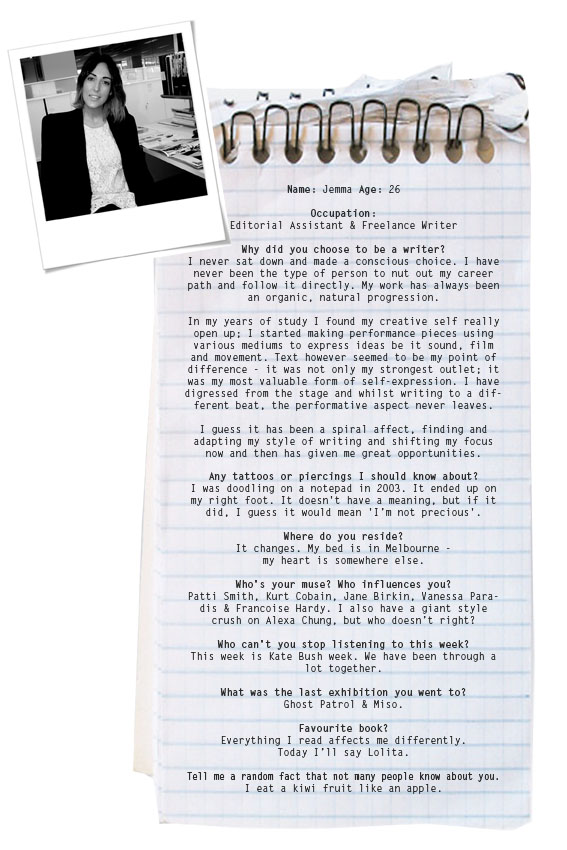 Name: Jemma Age: 26
Occupation:
Editorial Assistant & Freelance Writer
Why did you choose to be a writer?
I never sat down and made a conscious choice. I have
never been the type of person to nut out my career
path and follow it directly. My work has always been
an organic, natural progression.
In my years of study I found my creative self really
open up; I started making performance pieces using
various mediums to express ideas be it sound, film
and movement. Text however seemed to be my point of
difference - it was not only my strongest outlet; it
was my most valuable form of self-expression. I have
digressed from the stage and whilst writing to a dif-
ferent beat, the performative aspect never leaves.
I guess it has been a spiral affect, finding and
adapting my style of writing and shifting my focus
now and then has given me great opportunities.
Any tattoos or piercings I should know about?
I was doodling on a notepad in 2003. It ended up on
my right foot. It doesn't have a meaning, but if it
did, I guess it would mean 'I'm not precious'.
Where do you reside?
It changes. My bed is in Melbourne -
my heart is somewhere else.
Who's your muse? Who influences you?
Patti Smith, Kurt Cobain, Jane Birkin, Vanessa Para-
dis & Francoise Hardy. I also have a giant style
crush on Alexa Chung, but who doesn't right?
Who can't you stop listening to this week?
This week is Kate Bush week. We have been through a
lot together.
What was the last exhibition you went to?
Ghost Patrol & Miso.
Favourite book?
Everything I read affects me differently.
Today I'll say Lolita.
Tell me a random fact that not many people know about you.
I eat a kiwi fruit like an apple.